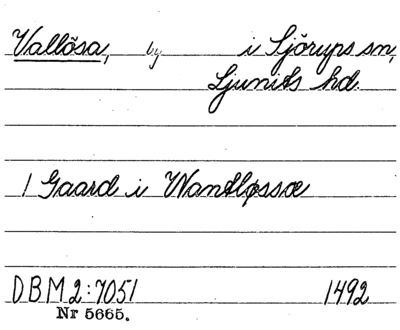 Vallösa, by i Sjörups sn,
Ljunits hd.
1 Gaard i Wantløssæ
DBM 2:7051 1492
Nr 5665.